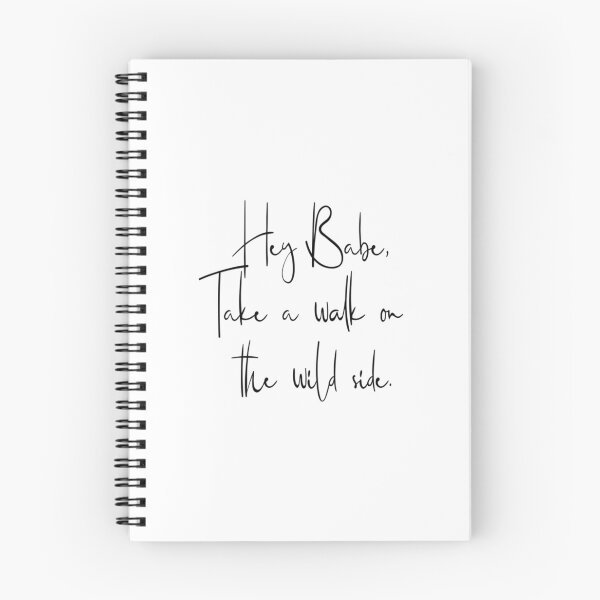 Hey Babe,
Take a walk on
the wild side.